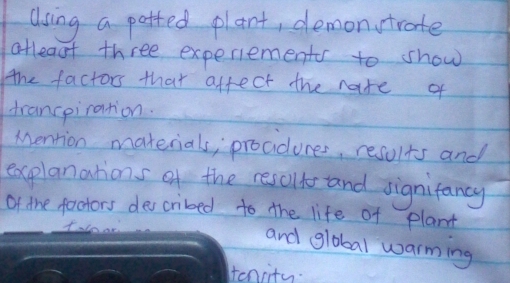 Using a potted plant, demonstrate
atleast three experiements to show
the factors that affect the rate of
transpiration.
Mention materials, procidures, results and
explanations of the results and signifancy
of the factors described to the life of plant
and global warming